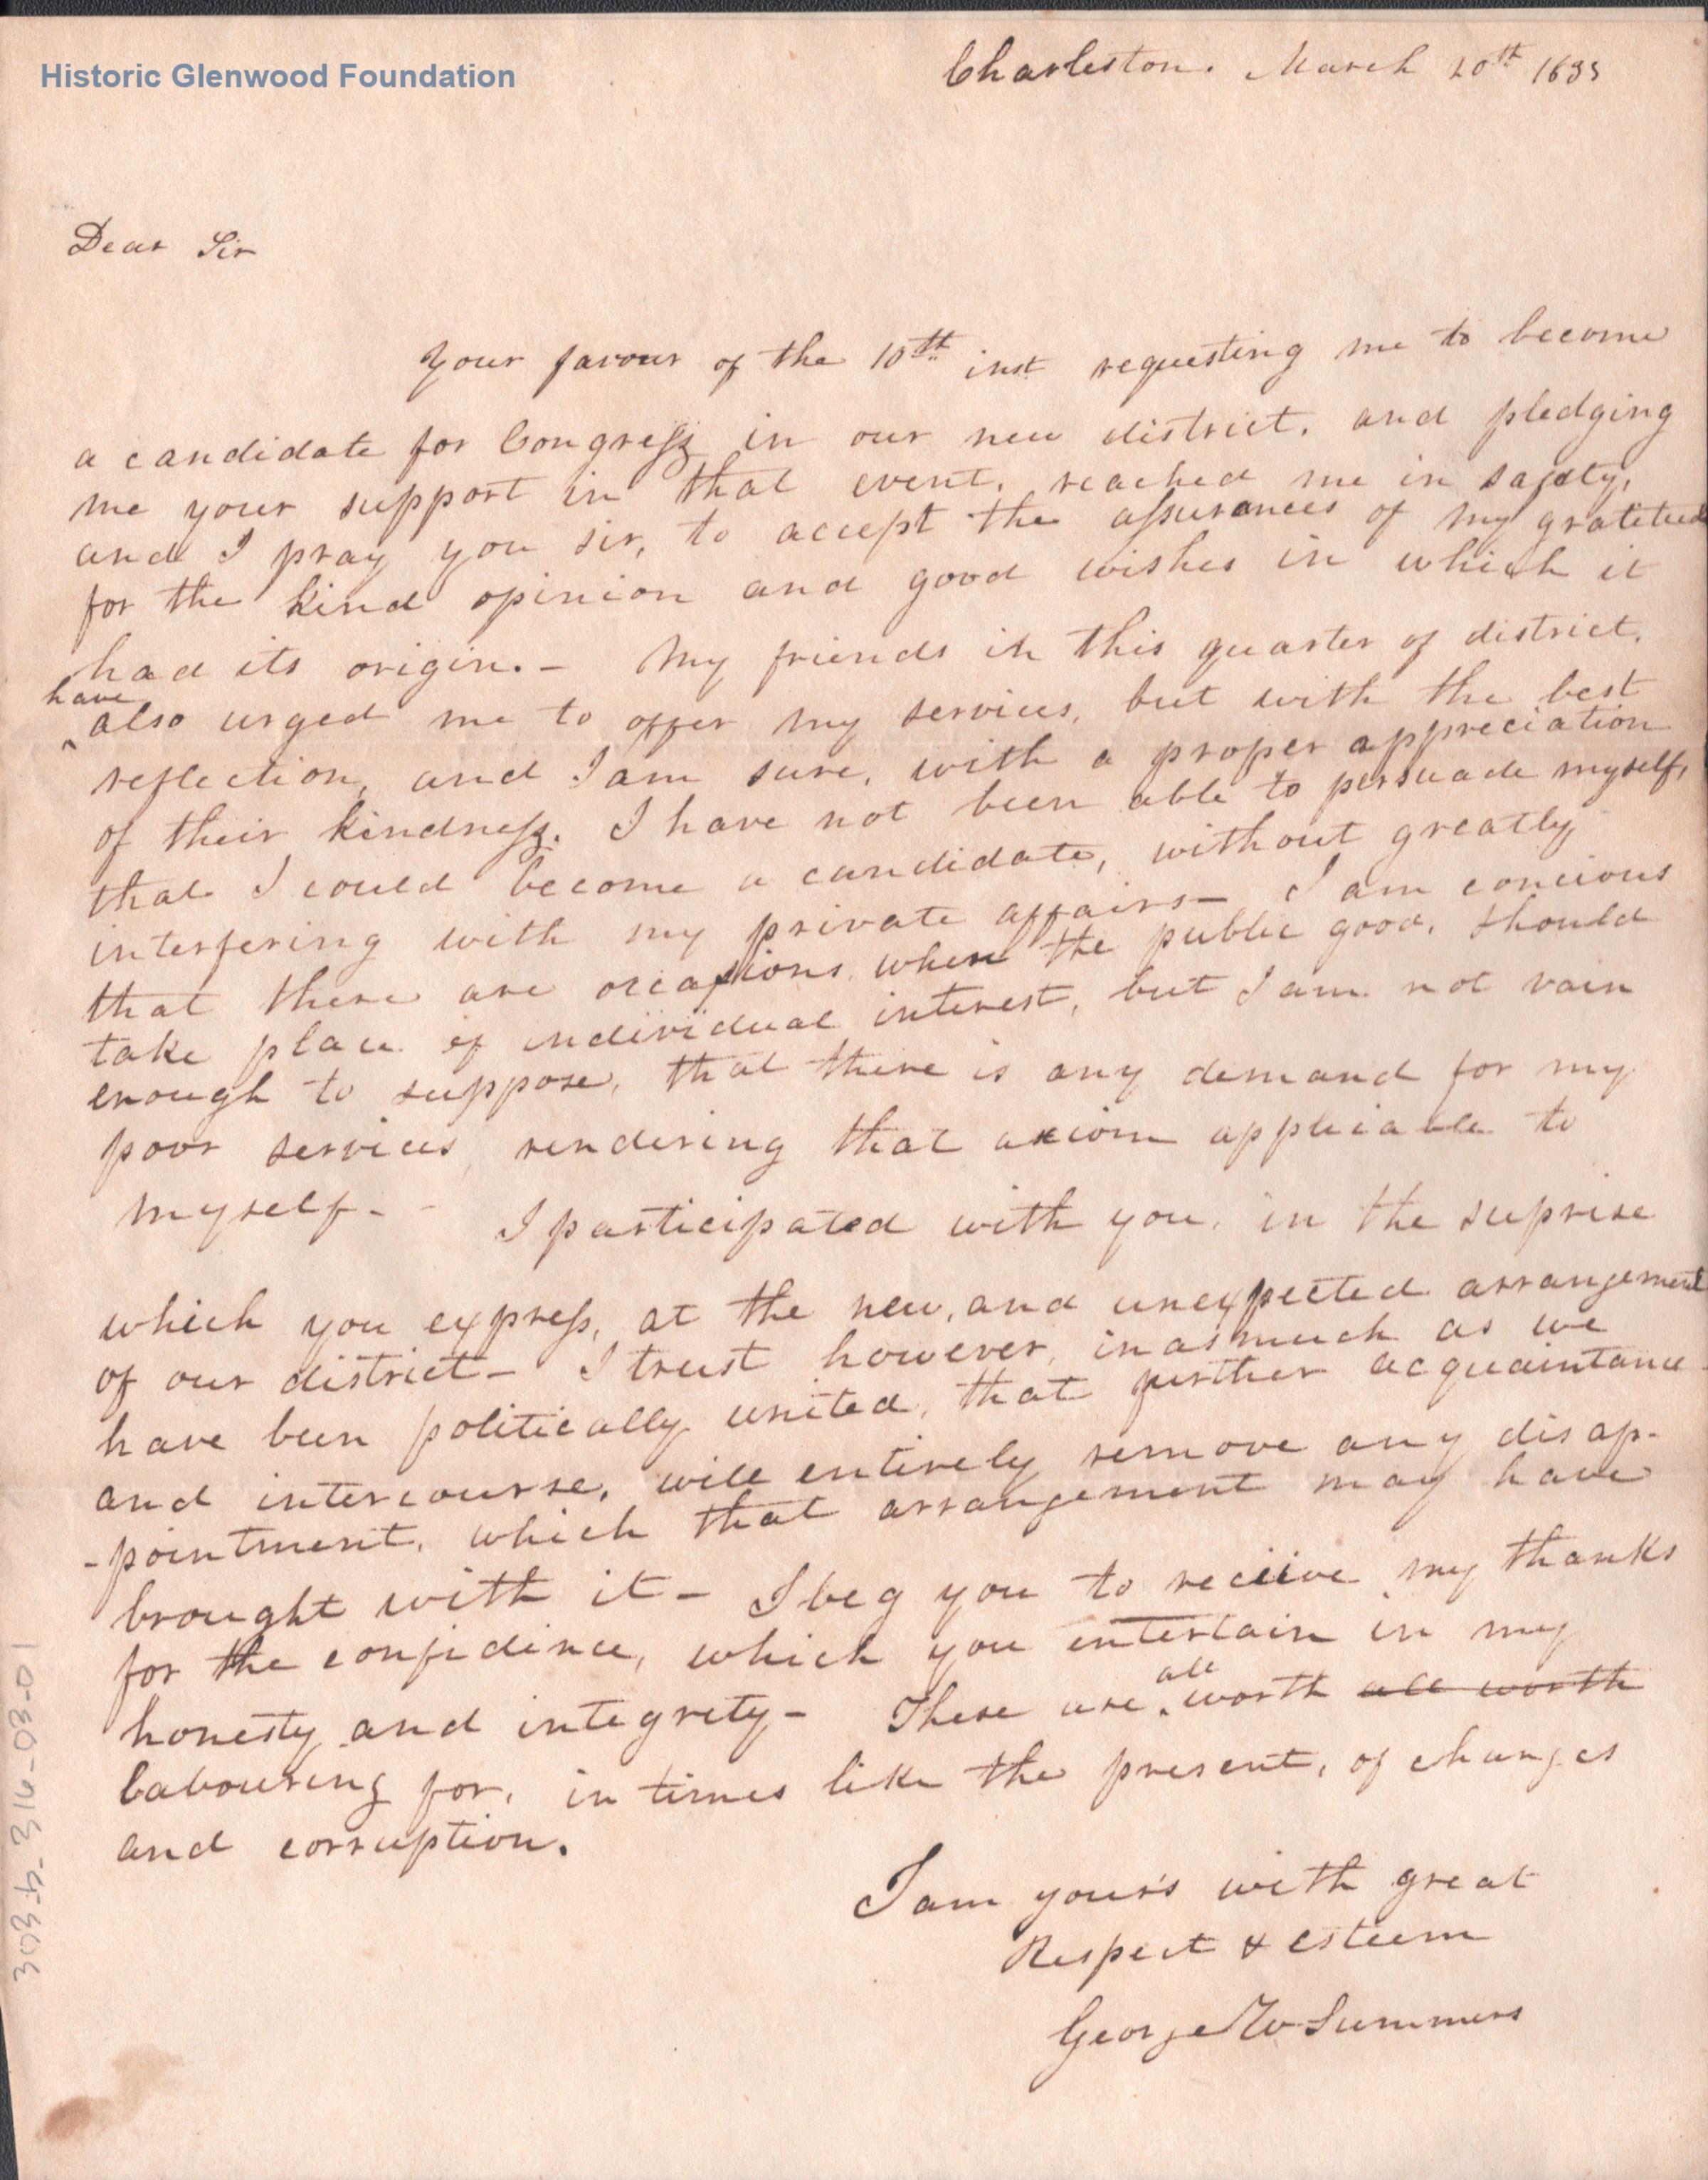 Historic Glenwood Foundation
Charleston. March 20th 1833
Dear Sir
Your favour of the 10th inst requesting me to become
a candidate for Congress in our new district, and pledging
me your support in that event, reached me in safety,
and I pray you sir, to accept the assurances of my gratitud
for the kind opinion and good wishes in which it
had its origin. - My friends in this quarter of district,
have
also urged me to offer my services, but with the best
reflection, and I am sure, with a proper appreciation
of their kindness. I have not been able to persuade myself,
that I could become a candidate, without greatly
interfering with my private affairs - I am concious
that there are occassions when the public good, should
take place of individual interest, but I am not vain
enough to suppose, that there is any demand for my
poor services, rendering that axiom applicable to
myself - - I participated with you, in the suprise
which you express, at the new, and unexpected arrangement
of our district - I trust however, inasmuch as we
have been politically united, that further acquaintance
and intercourse, will entirely remove any disap-
-pointment, which that arrangement may have
brought with it - I beg you to receiive my thanks
for the confidence, which you entertain in my
all
honesty and integrety - These are worth all worth
labouring for, in times like the present, of changes
and corruption.
I am your's with great
Respect & esteem
George W Summers
303-5-316-03-01